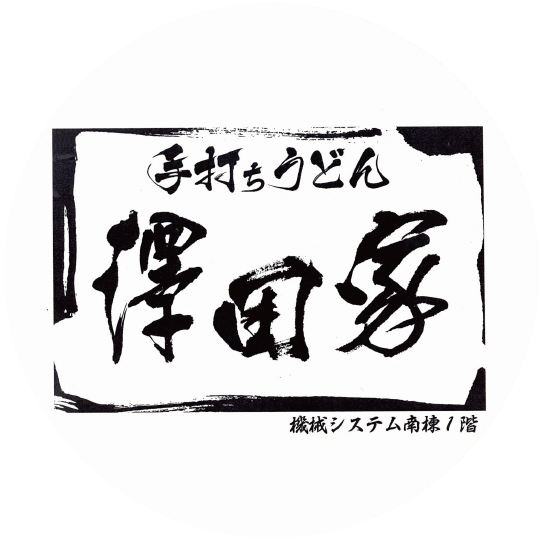 手打ちうどん
澤田家
機械システム南棟1階